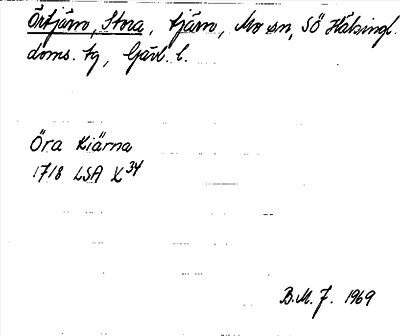 Örtjärn, Stora, tjärn, Mo sn, SÖ Hälsingl.
doms. tg, Gävl. l.
Öra Kiärna
1718 LSA X 34
B.M.J. 1969